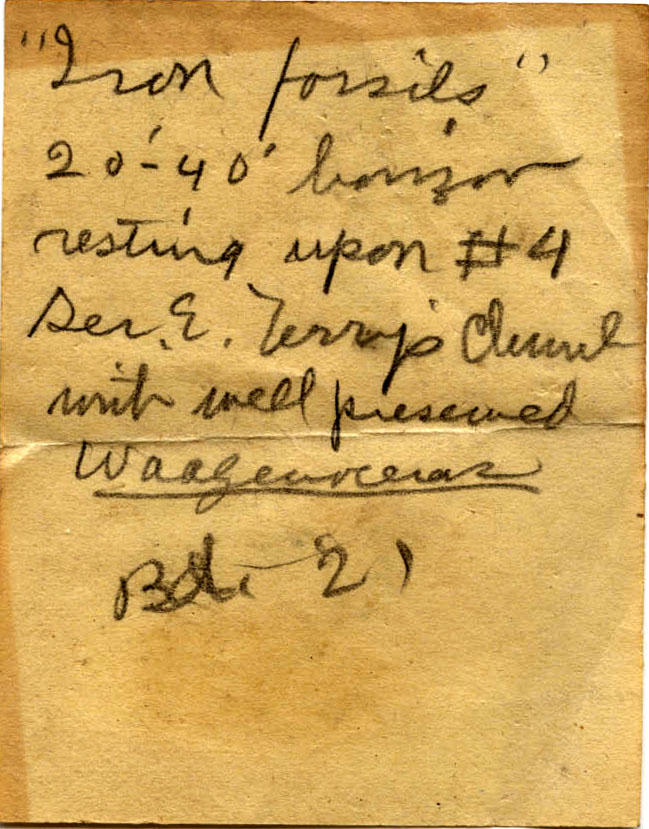 "Iron fossils"
20'-40' horizon
resting upon #4
Ser. E. Terry's Church
with well preserved
Waagenoceras
21